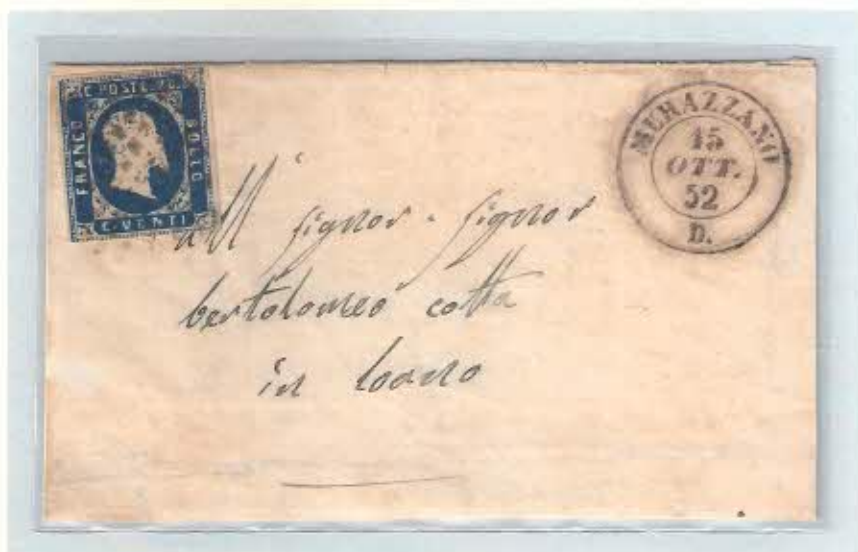 C. POSTE. 20.
FRANCO
BOLLO
C. VENTI
MURAZZANO
15
OTT.
52
D.
all' signor. signor
bertolomeo cotta
in loano